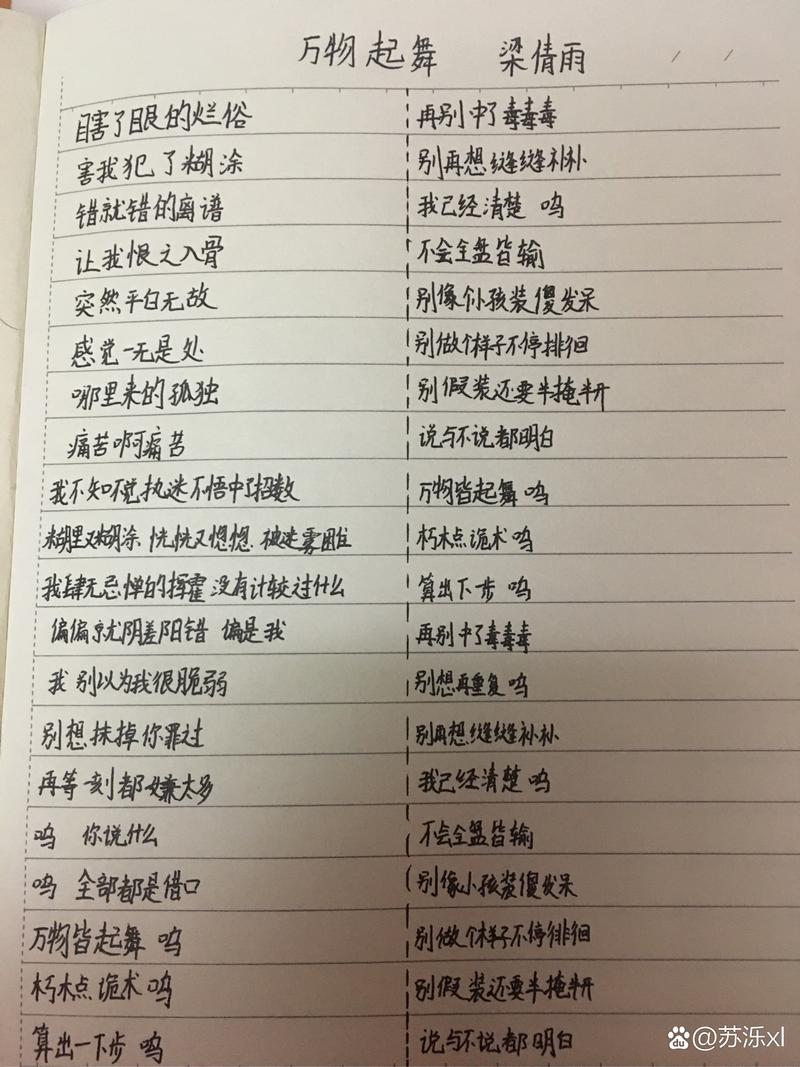 万物起舞 梁倩雨
目害了眼的烂俗
害我犯了糊涂
错就错的离谱
让我恨之入骨
突然平白无故
感觉一无是处
哪里来的孤独
痛苦啊痛苦
我不知不觉执迷不悟中了招数
糊里又糊涂 恍恍又惚惚 被迷雾困住
我肆无忌惮的挥霍 没有计较过什么
偏偏就阴差阳错 偏是我
我 别以为我很脆弱
别想抹掉你罪过
再等一刻都嫌太多
呜 你说什么
呜 全部都是借口
万物皆起舞 呜
朽木点诡术 呜
算出一下步 呜
再别中了毒毒毒
别再想缝缝补补
我已经清楚 呜
不会全盘皆输
别像个小孩装傻发呆
别做个样子不停排徊
别假装还要半掩半开
说与不说都明白
万物皆起舞 呜
朽木点诡术 呜
算出下一步 呜
再别中了毒毒毒
别想再重复 呜
别再想缝缝补补
我已经清楚 呜
不会全盘皆输
别像小孩装傻发呆
别做个样子不停徘徊
别假装还要半掩半开
说与不说都明白
Baidu @苏泺xl